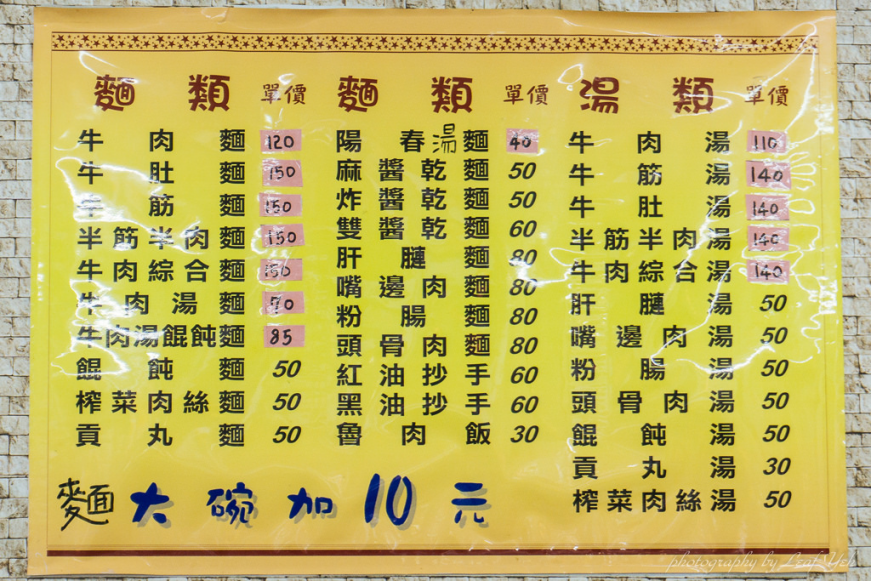 麵類 單價
牛肉麵 120
牛肚麵 150
牛筋麵 150
半筋半肉麵 150
牛肉綜合麵 150
牛肉湯麵 70
牛肉湯餛飩麵 85
餛飩麵 50
榨菜肉絲麵 50
貢丸麵 50
麵類 單價
陽春湯麵 40
麻醬乾麵 50
炸醬乾麵 50
雙醬乾麵 60
肝膁麵 80
嘴邊肉麵 80
粉腸麵 80
頭骨肉麵 80
紅油抄手 60
黑油抄手 60
魯肉飯 30
湯類 單價
牛肉湯 110
牛筋湯 140
牛肚湯 140
半筋半肉湯 140
牛肉綜合湯 140
肝膁湯 50
嘴邊肉湯 50
粉腸湯 50
頭骨肉湯 50
餛飩湯 50
貢丸湯 30
榨菜肉絲湯 50
麵大碗加10元
photography by Leaf Yeh